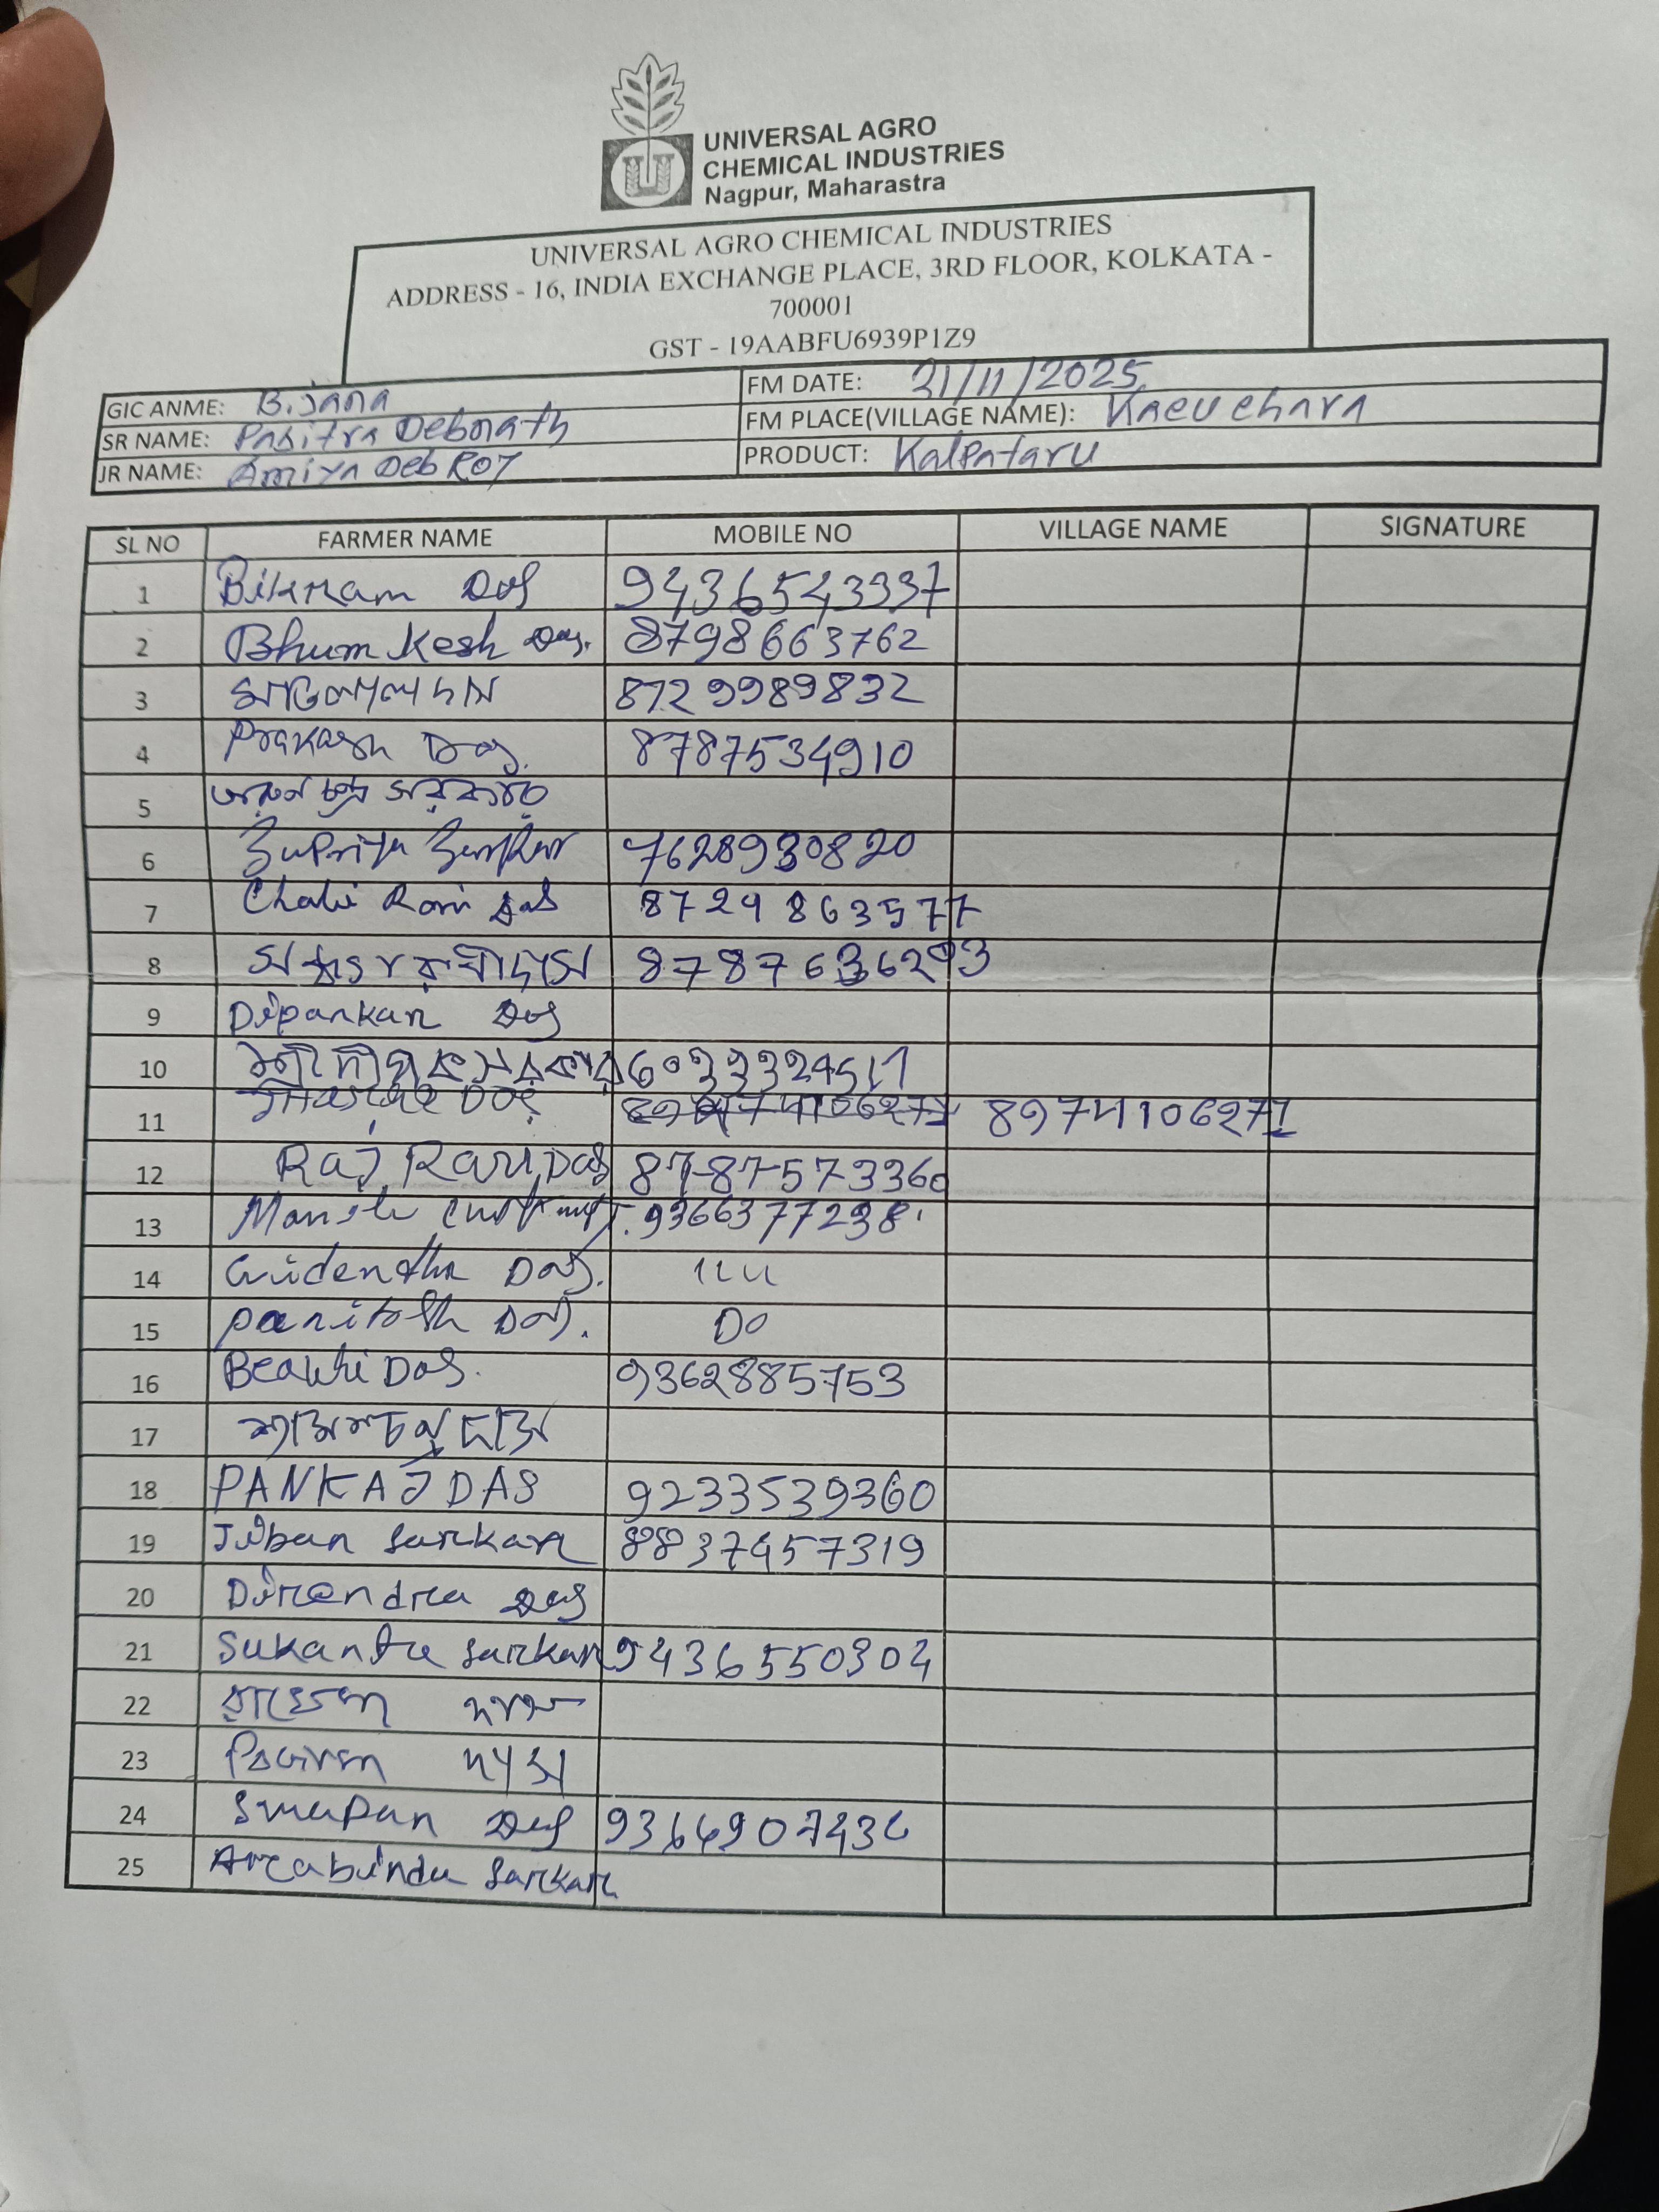 UNIVERSAL AGRO
CHEMICAL INDUSTRIES
Nagpur, Maharastra
UNIVERSAL AGRO CHEMICAL INDUSTRIES
ADDRESS - 16, INDIA EXCHANGE PLACE, 3RD FLOOR, KOLKATA -
700001
GST - 19AABFU6939P1Z9
GIC ANME: Bijana FM DATE: 21/11/2025
SR NAME: Pabitra Debnath FM PLACE(VILLAGE NAME):
JR NAME: Amiya Deb Roy PRODUCT: Kalpataru
SL NO FARMER NAME MOBILE NO VILLAGE NAME SIGNATURE
1 Bikram Das 9436543337
2 Bhumkesh Das. 8798663762
3 মতিলাল দাস 8729989832
4 Prakash Das. 8787534910
5 চন্দ্র সরকার
6 Supriya Sarkar 7628930820
7 Chabi Rani Das 8729863577
8 দাস
9 Dipankar Das
10 সরকার 6033324511
11 Das 8974106271
12 Raj Rani Das 8787573360
13 9366377238
14 Das.
15 Paritosh Das. Do
16 Das. 9362885753
17 দাস
18 PANKAJ DAS 9233539360
19 Jiban Sarkar 8837457319
20 Direndra Das
21 Sukanta Sarkar 9436550304
22
23 দাস
24 Swapan Das
25 Arabinda Sarkar